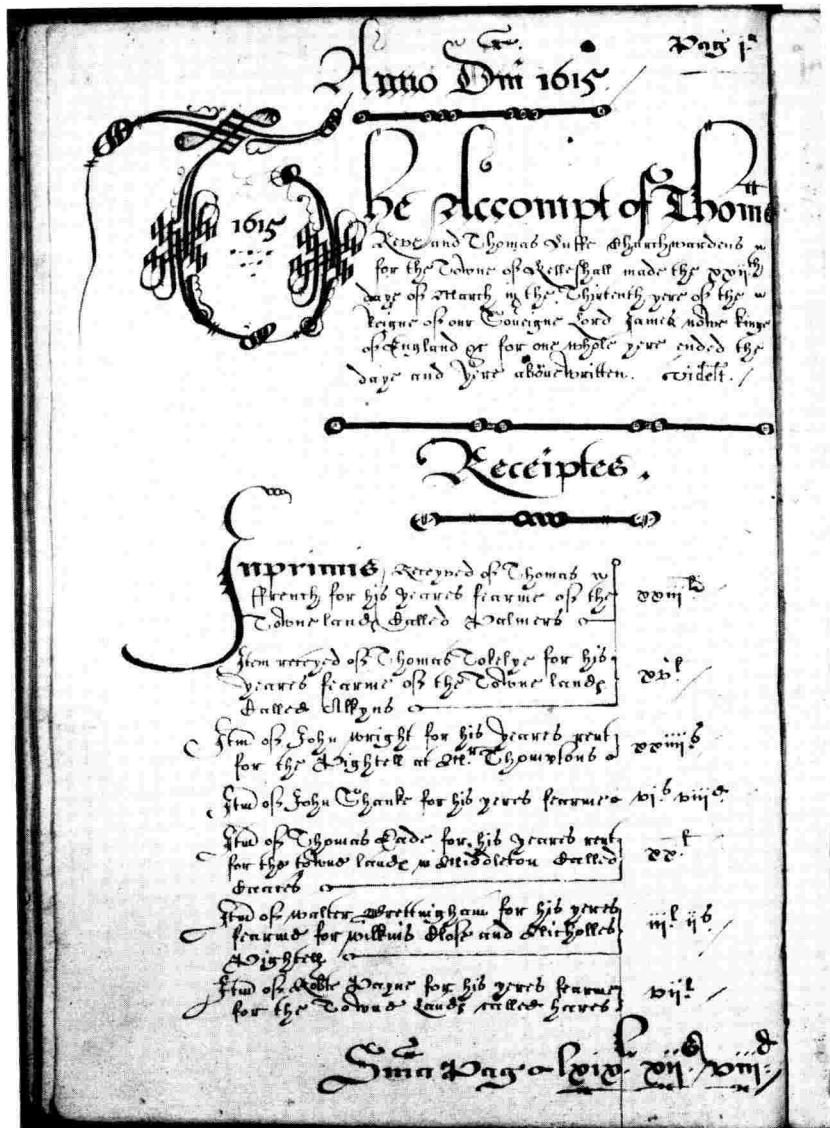 Pag 1
Anno Dni 1615
1615
The Accompt of Thoms
Reve and Thomas Cuffe Churchwardens
for the Towne of Kelleshall made the xxiith
daye of March in the Thirtenth yere of the
Reigne of our Soueigne Lord James nowe kinge
of England &c for one whole yere ended the
daye and yere abouewritten. Videlt.
Receiptes.
Inprimis Receyved of Thomas
ffrench for his yeares fearme of the
Towne landes Called Palmers
xxiiil
Item receyed of Thomas Tokelye for his
yeares fearme of the Towne landes
Called Alkyns
xvl
Itm of John wright for his yeares rent
for the Pightell at Mr Thompsons
xxiiiis
Itm of John Thanke for his yeres fearme
vis viiid
Itm of Thomas Cade for his yeares rent
for the towne landes in Middleton Called
xxl
Itm of walter Brettingham for his yeres
fearme for willms Close and Nicholles
Pightell
iiil iis
Itm of Robte Payne for his yeres fearme
for the Towne Landes called hares
viil
Sma Pag lxixl xiis viiid